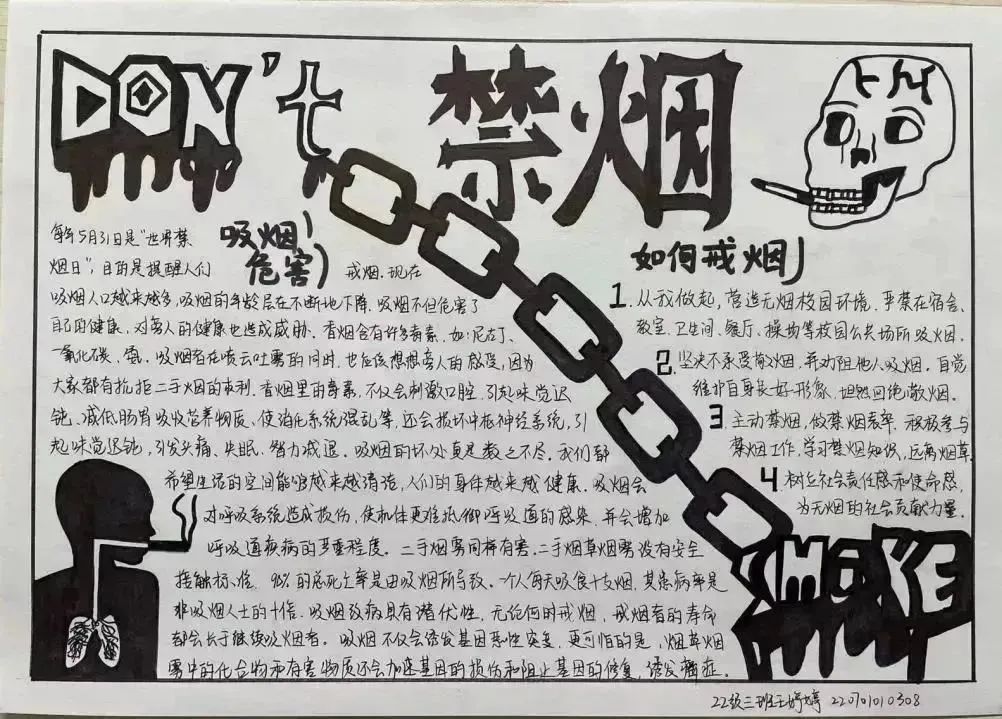 DON't
禁烟
吸烟
危害
每年5月31日是"世界禁
烟日",目的是提醒人们 戒烟.现在
吸烟人口越来越多,吸烟的年龄层在不断地下降.吸烟不但危害了
自己的健康,对旁人的健康也造成威胁.香烟含有许多毒素,如:尼古丁、
一氧化碳、氰.吸烟者在喷云吐雾的同时,也应该想想旁人的感受,因为
大家都有抗拒二手烟的权利.香烟里的毒素,不仅会刺激口腔,引起味觉迟
钝、减低肠胃吸收营养物质、使消化系统混乱等,还会损坏中枢神经系统,引
起味觉迟钝,引发头痛、失眠、智力减退.吸烟的坏处真是数之不尽.我们都
希望生活的空间能够越来越清洁,人们的身体越来越健康.吸烟会
对呼吸系统造成损伤,使机体更难抵御呼吸道的感染.并会增加
呼吸道疾病的严重程度.二手烟雾同样有害,二手烟草烟雾没有安全
接触标准.90%的 死亡率是由吸烟所导致.一个人每天吸食十支烟,其患病率是
非吸烟人士的十倍.吸烟致病具有潜伏性,无论何时戒烟,戒烟者的寿命
都会长于继续吸烟者.吸烟不仅会诱发基因恶性突变,更可怕的是,烟草烟
雾中的化合物和有害物质还会加速基因的损伤和阻止基因的修复,诱发癌症.
如何戒烟
1.从我做起,营造无烟校园环境.严禁在宿舍、
教室、卫生间、餐厅、操场等校园公共场所吸烟.
2.坚决不承受敬烟.并劝阻他人吸烟.自觉
维护自身良好形象,坦然回绝敬烟.
3 主动禁烟,做禁烟表率.积极参与
禁烟工作,学习禁烟知识,远离烟草.
4.树立社会责任感和使命感,
为无烟的社会贡献力量.
SMOKE
22级三班王婷婷 220701010308